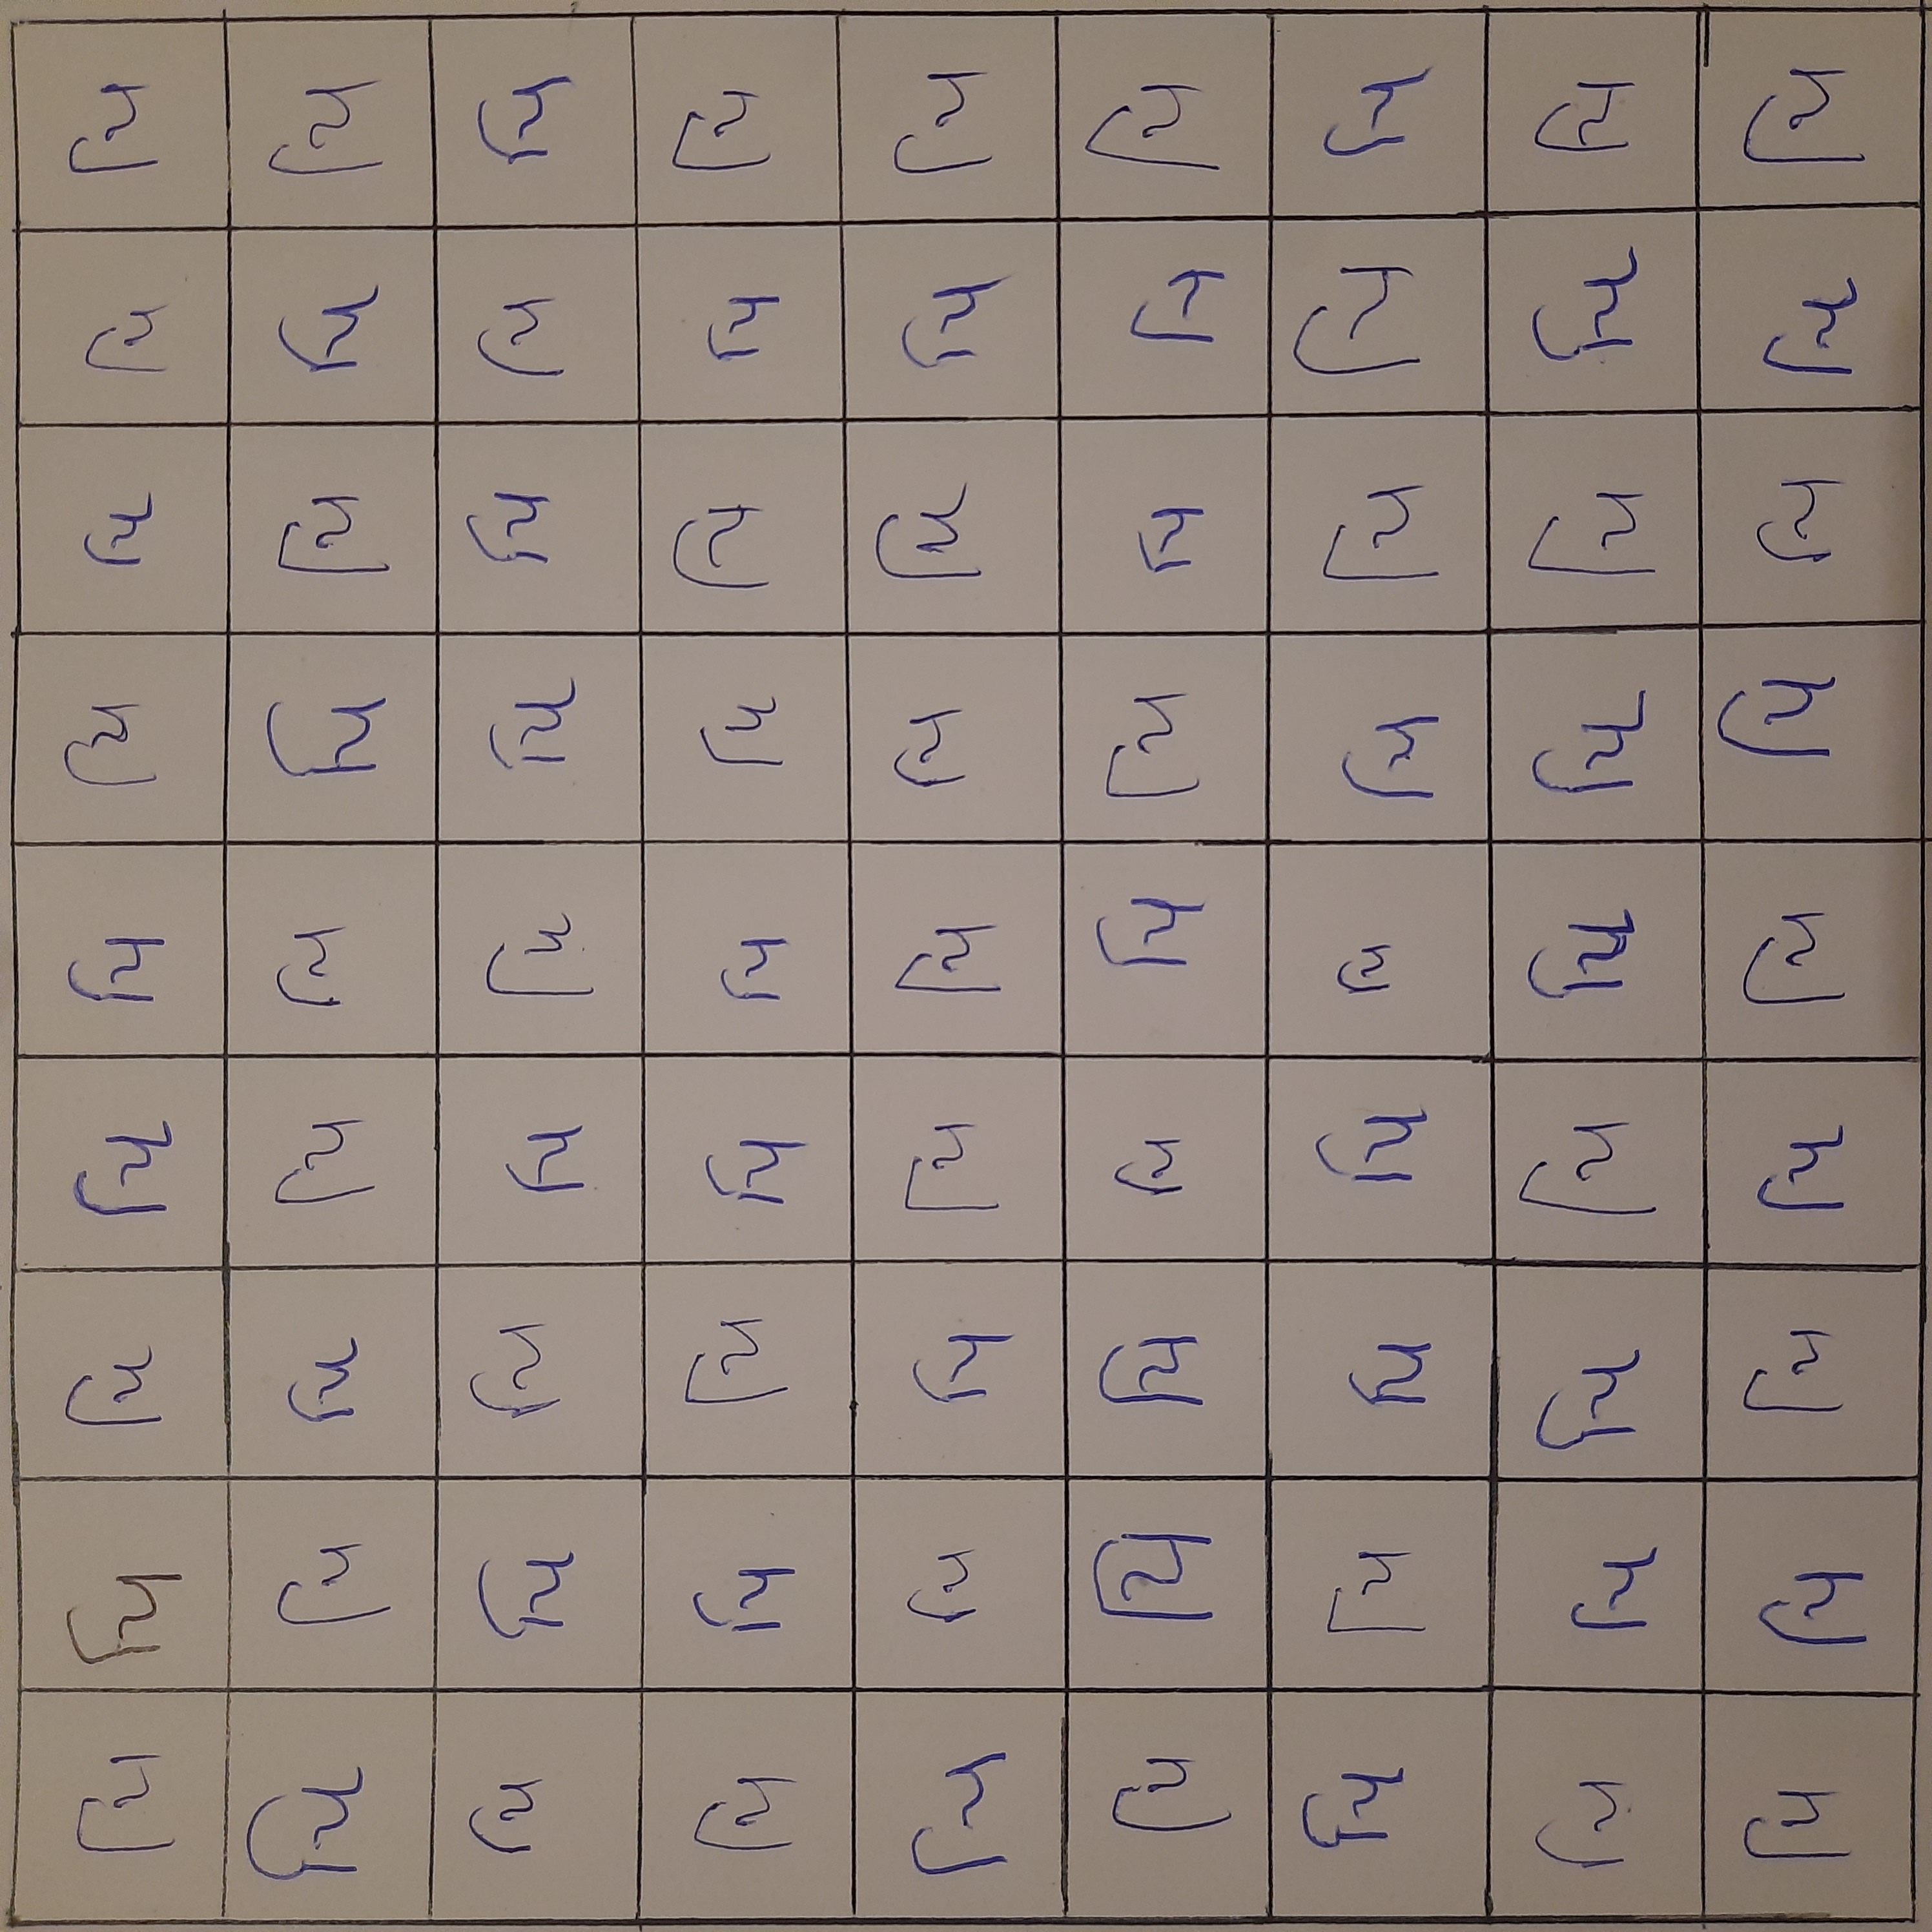 પિ પિ પિ પિ પિ પિ પિ પિ પિ
પિ પિ પિ પિ પિ પિ પિ પિ પિ
પિ પિ પિ પિ પિ પિ પિ પિ પિ
પિ પિ પિ પિ પિ પિ પિ પિ પિ
પિ પિ પિ પિ પિ પિ પિ પિ પિ
પિ પિ પિ પિ પિ પિ પિ પિ પિ
પિ પિ પિ પિ પિ પિ પિ પિ પિ
પિ પિ પિ પિ પિ પિ પિ પિ પિ
પિ પિ પિ પિ પિ પિ પિ પિ પિ